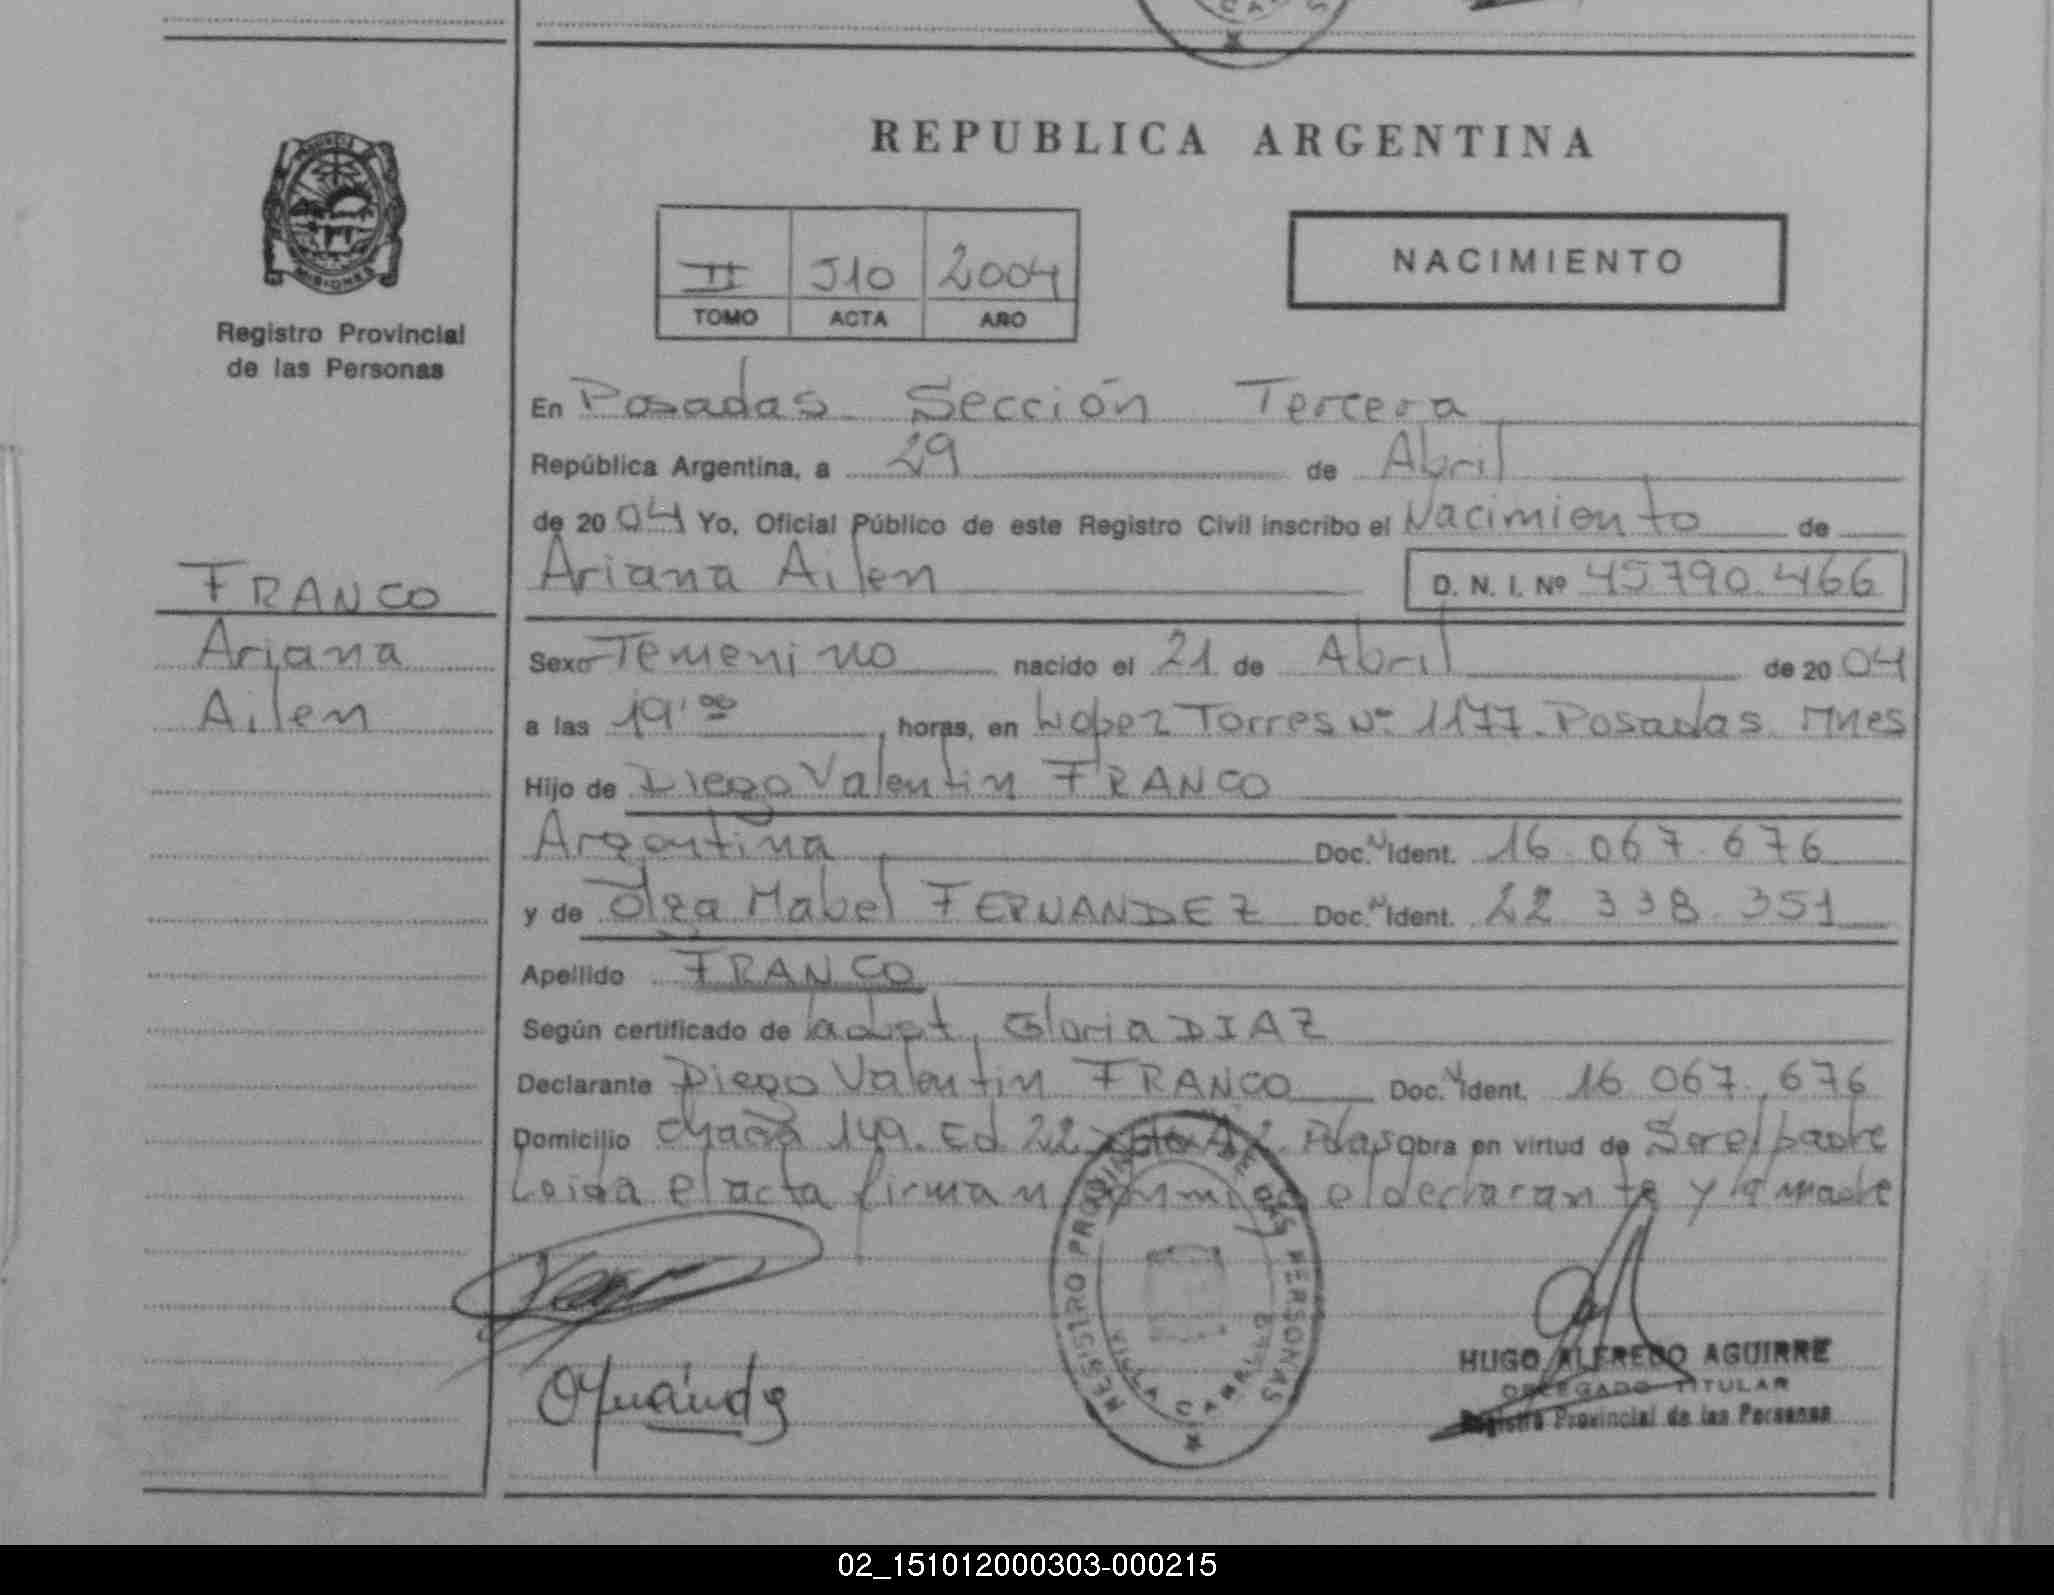 REPUBLICA ARGENTINA
NACIMIENTO
II 510 2004
TOMO ACTA AÑO
PROVINCIA DE
MISIONES
Registro Provincial
de las Personas
FRANCO
Ariana
Ailen
En Posadas Sección Tercera
República Argentina, a 29 de Abril
de 2004 Yo, Oficial Público de este Registro Civil inscribo el Nacimiento de
Ariana Ailen D. N. I. Nº 45790.466
Sexo Femenino nacido el 21 de Abril de 2004
a las 19'00 horas, en Lopez Torres Nº 1177. Posadas. Mnes
Hijo de Diego Valentin FRANCO
Argentina Doc. Ident. 16.067.676
y de Olga Mabel FERNANDEZ Doc. Ident. 22.338.351
Apellido FRANCO
Según certificado de la obst, Gloria DIAZ
Declarante Diego Valentin FRANCO Doc. Ident. 16.067.676
Domicilio Chacra 149. Ed 22 Pdas obra en virtud de Ser el padre
Leida el acta firman el declarante y la madre
REGISTRO PROVINCIAL DE LAS PERSONAS
VILLA CABELLO
HUGO ALFREDO AGUIRRE
DELEGADO TITULAR
Registro Provincial de las Personas
02_151012000303-000215